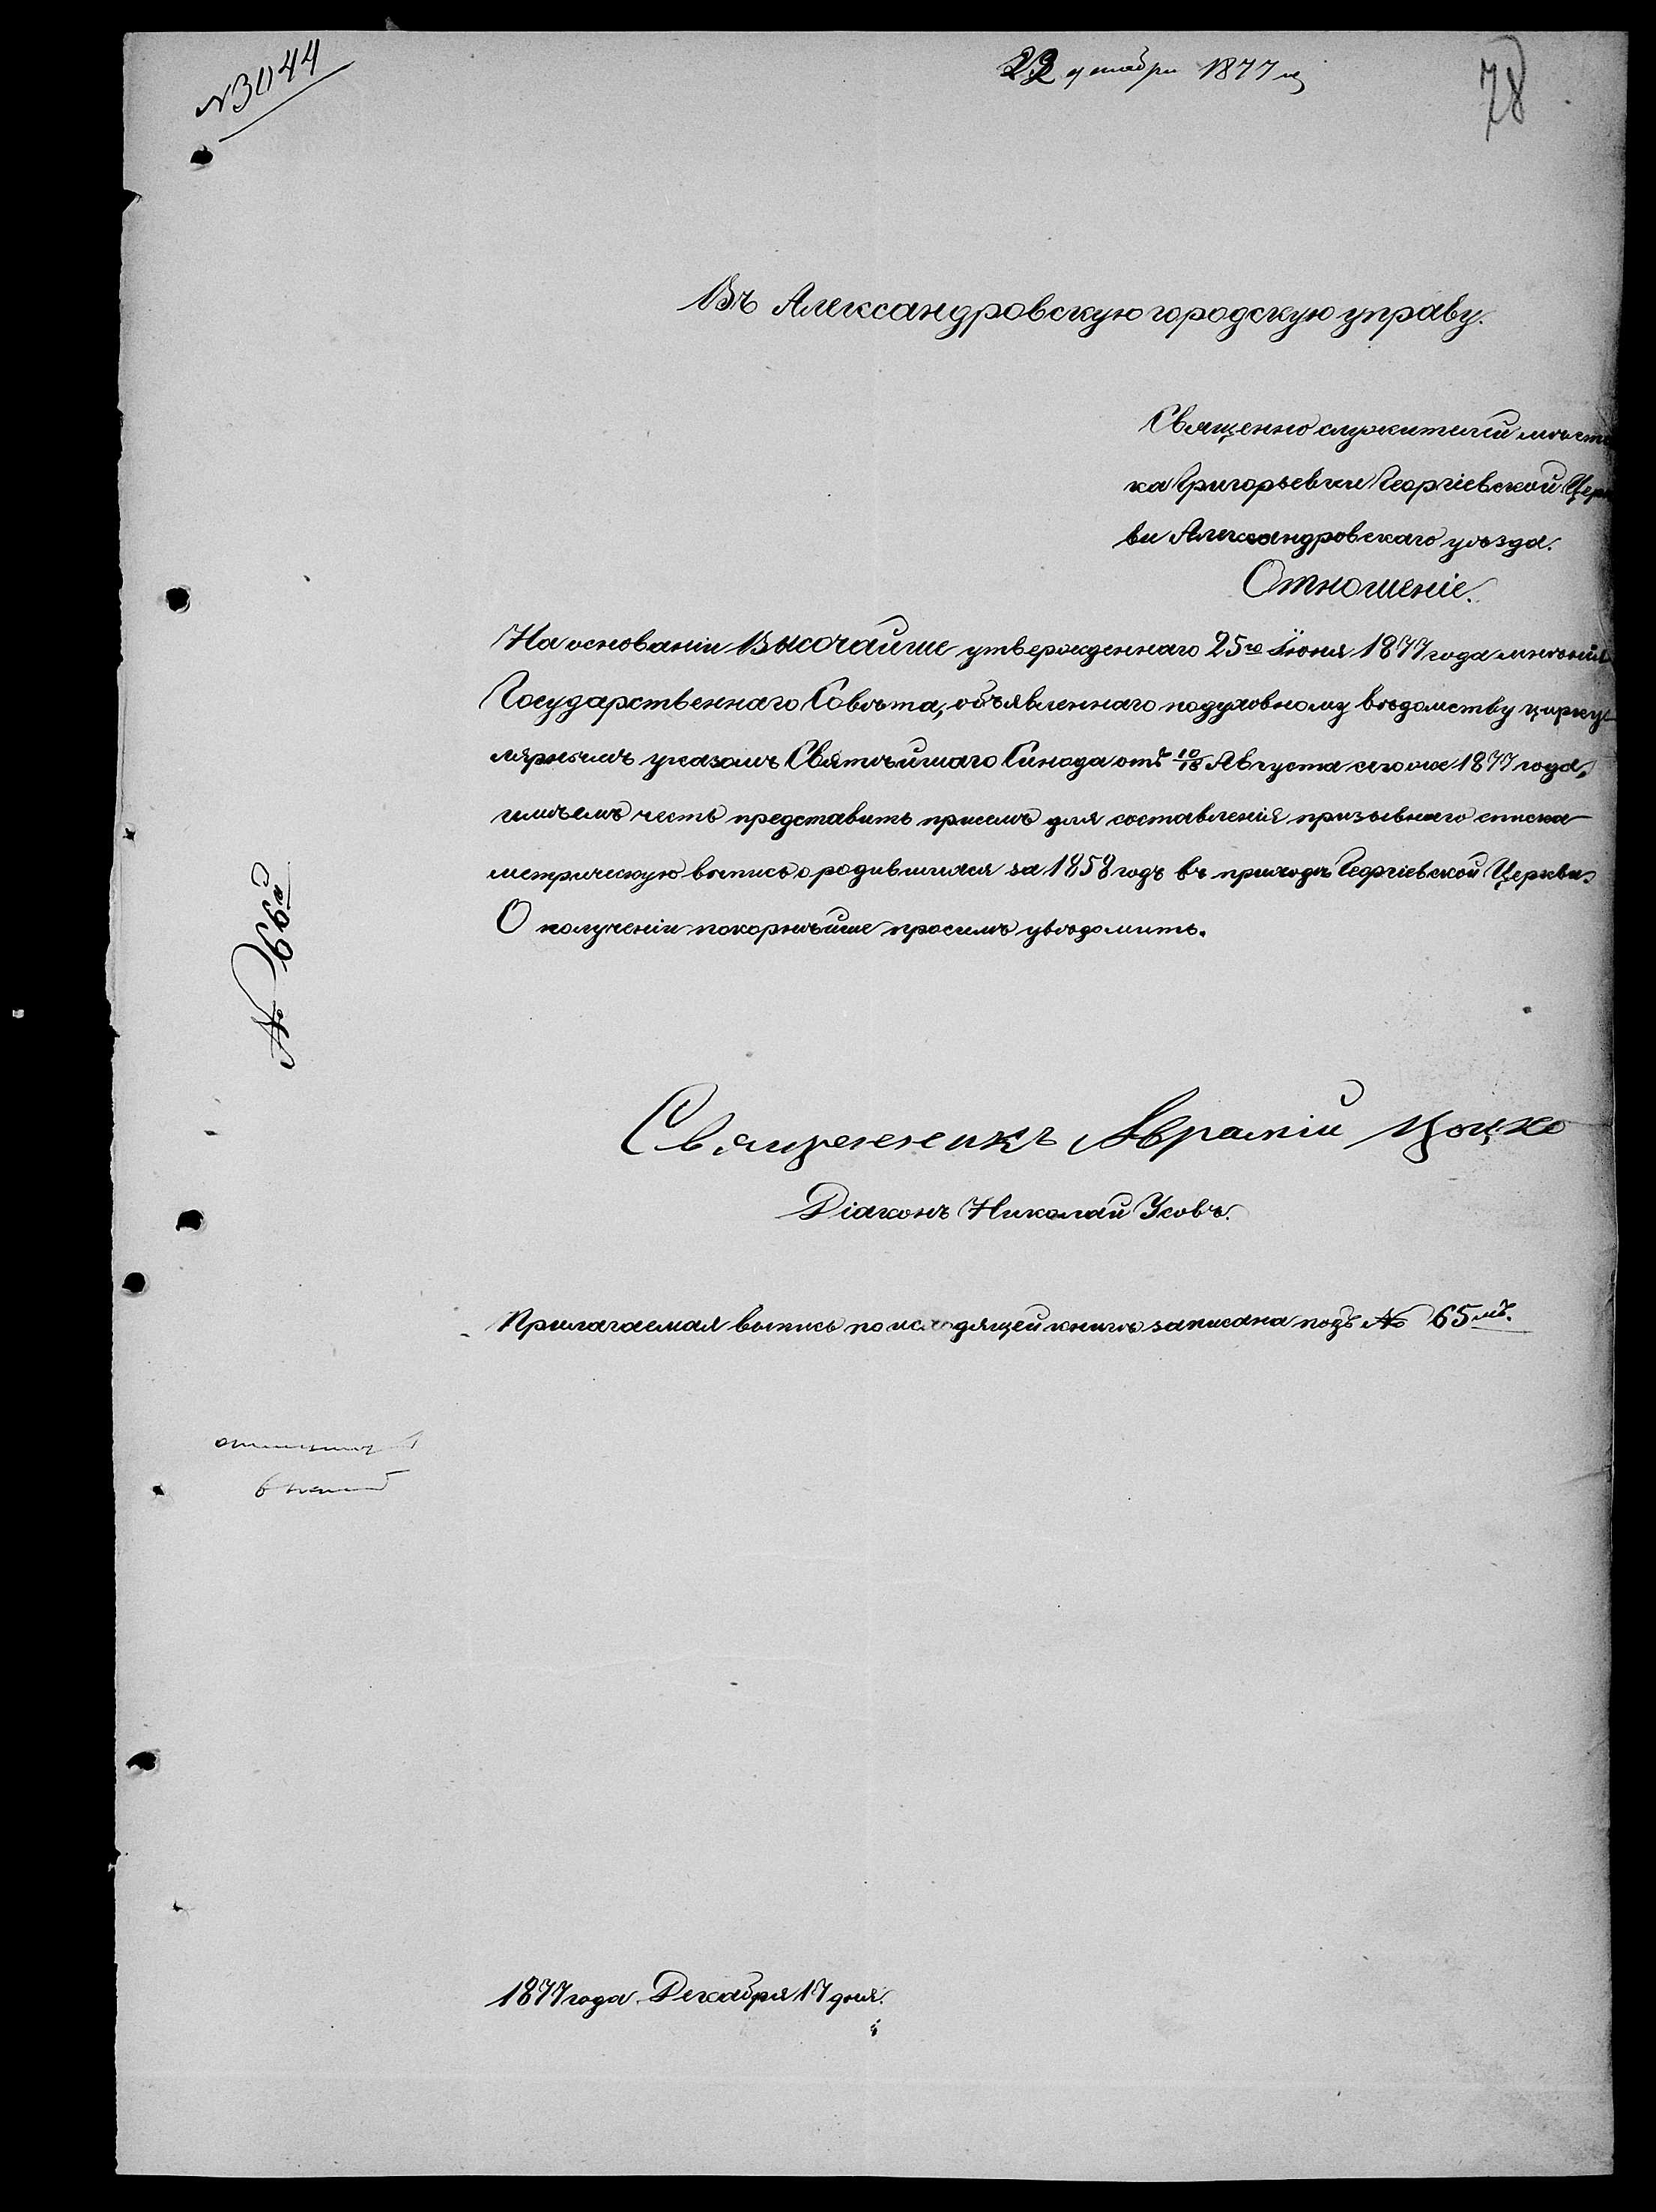 № 3044
22 декабря 1877 г
78
Въ Александровскую городскую управу.
Священно служителей мѣсте
ка Григорьевки Георгіевской Цер
ви Александровскаго уѣзда.
Отношеніе.
На основаніи Высочайше утвержденнаго 25го Іюня 1877 года мнѣнія
Государственнаго Совѣта, объявленнаго по духовному вѣдомству цирку
лярнымъ указомъ Святѣйшаго Синода отъ 10/18 Августа сего же 1877 года,
имѣемъ честь представить присемъ для составленія призывнаго списка
метрическую выпись о родившихся за 1858 годъ въ приходѣ Георгіевской Церкви.
О полученіи покорнѣйше просимъ увѣдомить.
№ 66й
Священникъ Авраміи
Діаконъ Николай Усовъ.
Прилагаемая выпись по исходящей книгѣ записана подъ № 65мъ.
1877 года Декабря 17 дня.